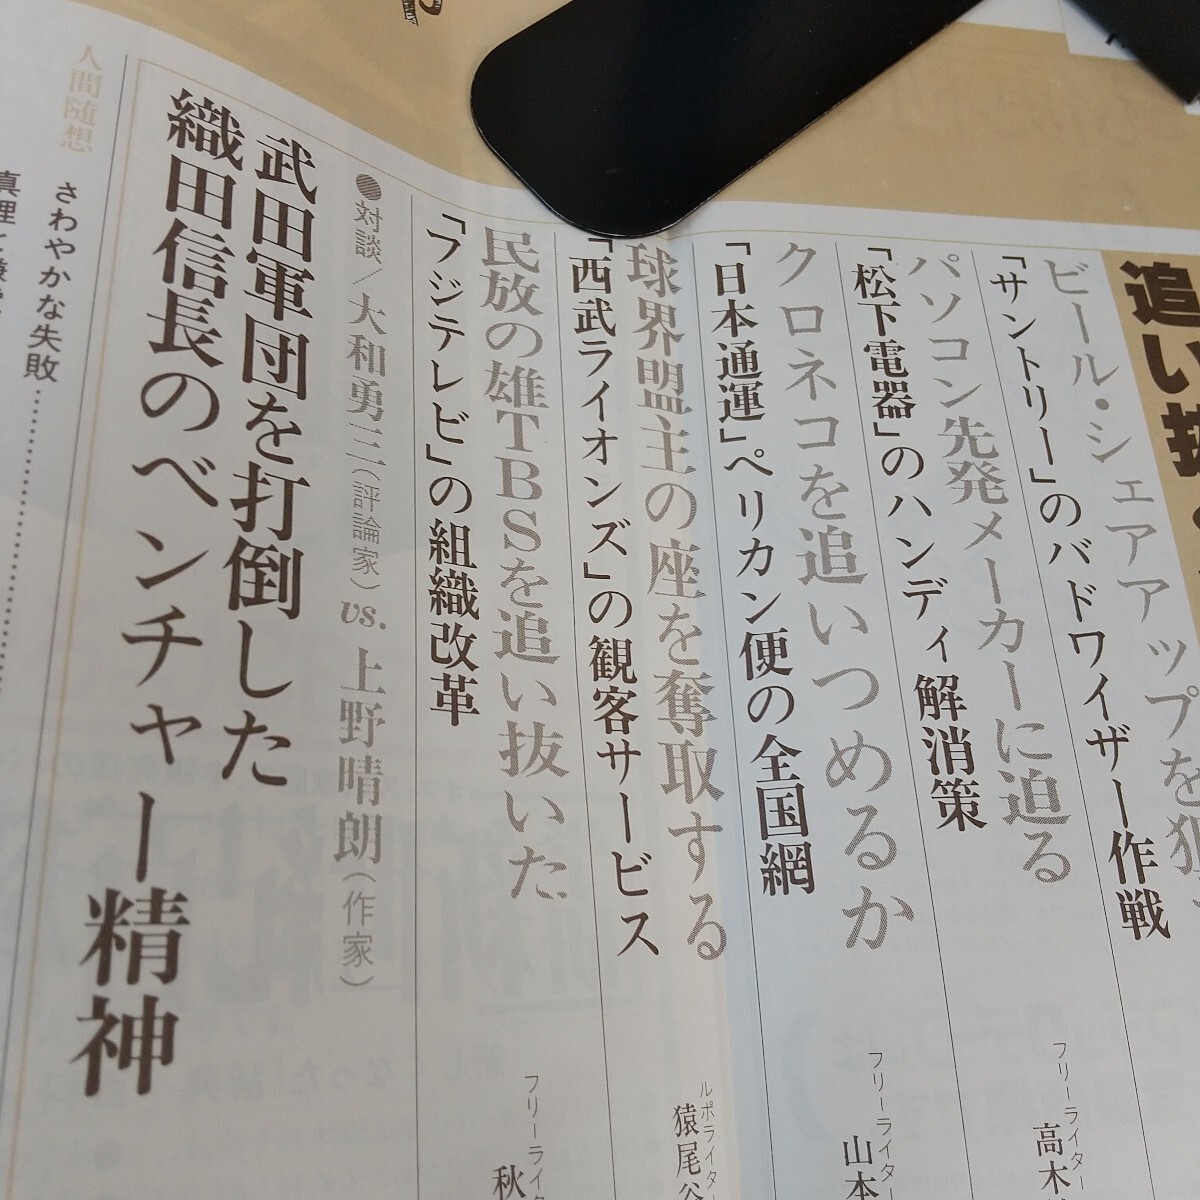 追い抜
ビール・シェアアップを狙
「サントリー」のバドワイザー作戦
パソコン先発メーカーに迫る
「松下電器」のハンディ解消策
フリーライター
高木
クロネコを追いつめるか
「日本通運」ペリカン便の全国網
フリーライター
山本
球界盟主の座を奪取する
「西武ライオンズ」の観客サービス
ルポライター
猿尾谷
民放の雄TBSを追い抜いた
「フジテレビ」の組織改革
フリーライタ
秋
●対談/大和勇三(評論家)vs.上野晴朗(作家)
武田軍団を打倒した
織田信長のベンチャー精神
人間随想
さわやかな失敗
真理と